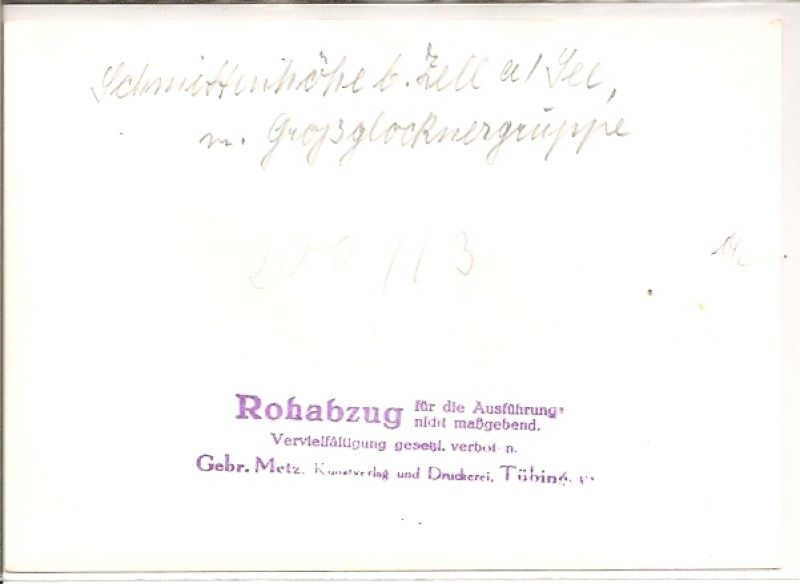 Schmittenhöhe b. Zell a/See,
m. Großglocknergruppe
200 4/3
Rohabzug für die Ausführung
nicht maßgebend.
Vervielfältigung gesetzl. verboten.
Gebr. Metz, Kunstverlag und Druckerei, Tübingen